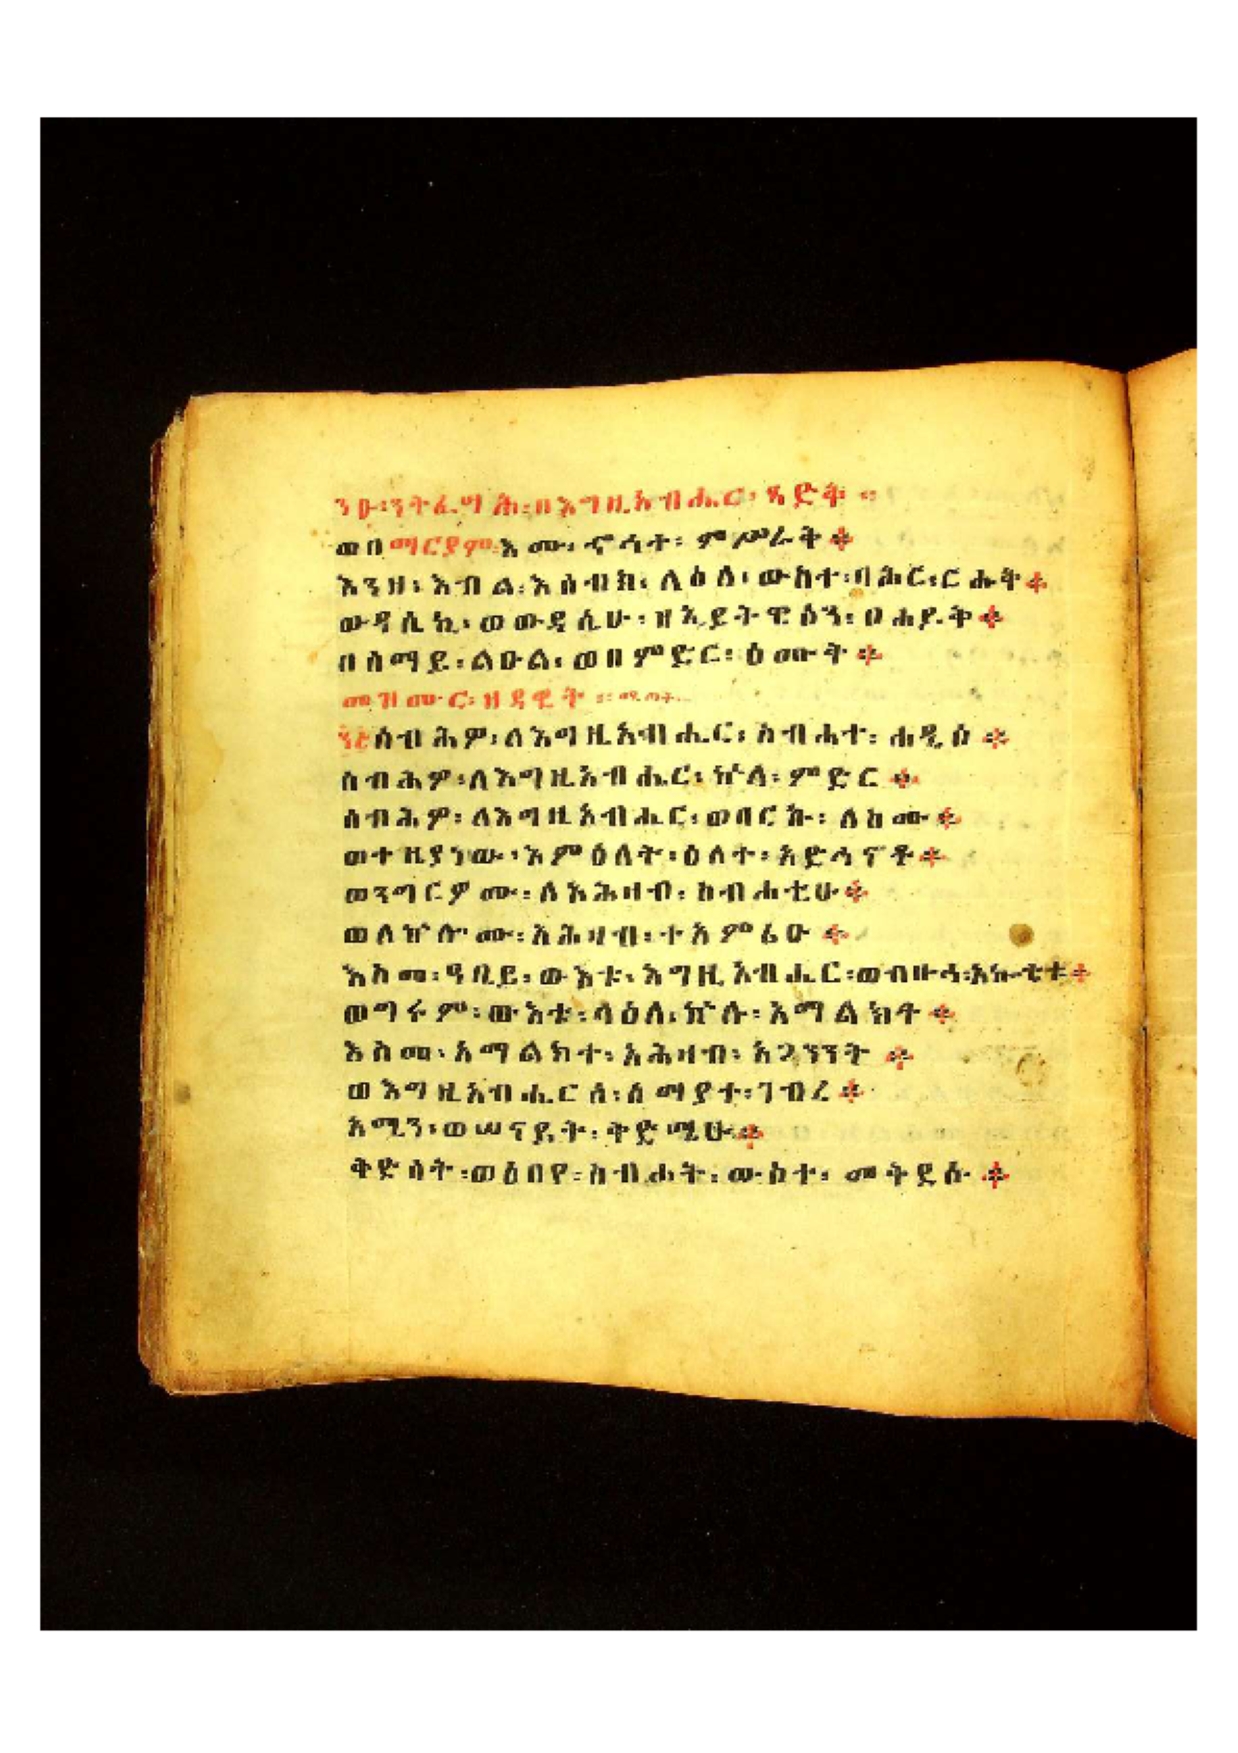 ንዑ፡ንትፈሣሕ፡በእግዚአብሔር፡ጻድቅ ።
ወበማርያም፡እሙ፡ኖኅተ፡ምሥራቅ ፨
እንዘ፡እብል፡እሰብክ፡ላዕለ፡ውስተ፡ባሕር፡ርሑቅ፨
ውዳሴኪ፡ወውዳሴሁ፡ዘኢይትሞዕን፡ዐሐዶ.ቅ ፨
በሰማይ፡ልዑል፡ወበምድር፡ዕሙቅ ፨
መዝሙር፡ዘዳዊት ።
፺፭ሰብሕዎ፡ለእግዚአብሔር፡ስብሐተ፡ሐዲሰ ፨
ሰብሕዎ፡ለእግዚአብሔር፡ኵላ፡ምድር ፨
ሰብሕዎ፡ለእግዚአብሔር፡ወባርኩ፡ለስሙ ፨
ወተዜያነው፡እምዕለት፡ዕለተ፡አድኅኖቶ፨
ወንግርዎሙ፡ለአሕዛብ፡ስብሐቲሁ፨
ወለኵሎሙ፡አሕዛብ፡ተአምሪሁ ፨
እስመ፡ዓቢይ፡ውእቱ፡እግዚአብሔር፡ወብዙኅ፡አኰቴቱ፨
ወግሩም፡ውእቱ፡ላዕለ፡ኵሉ፡አማልክት ፨
እስመ፡አማልክተ፡አሕዛብ፡አጋንንት ፨
ወእግዚአብሔርሰ፡ሰማያተ፡ገብረ ፨
አሚን፡ወሠናይት፡ቅድሜሁ፨
ቅድሳት፡ወዕበየ፡ስብሐት፡ውስተ፡መቅደሱ ፨